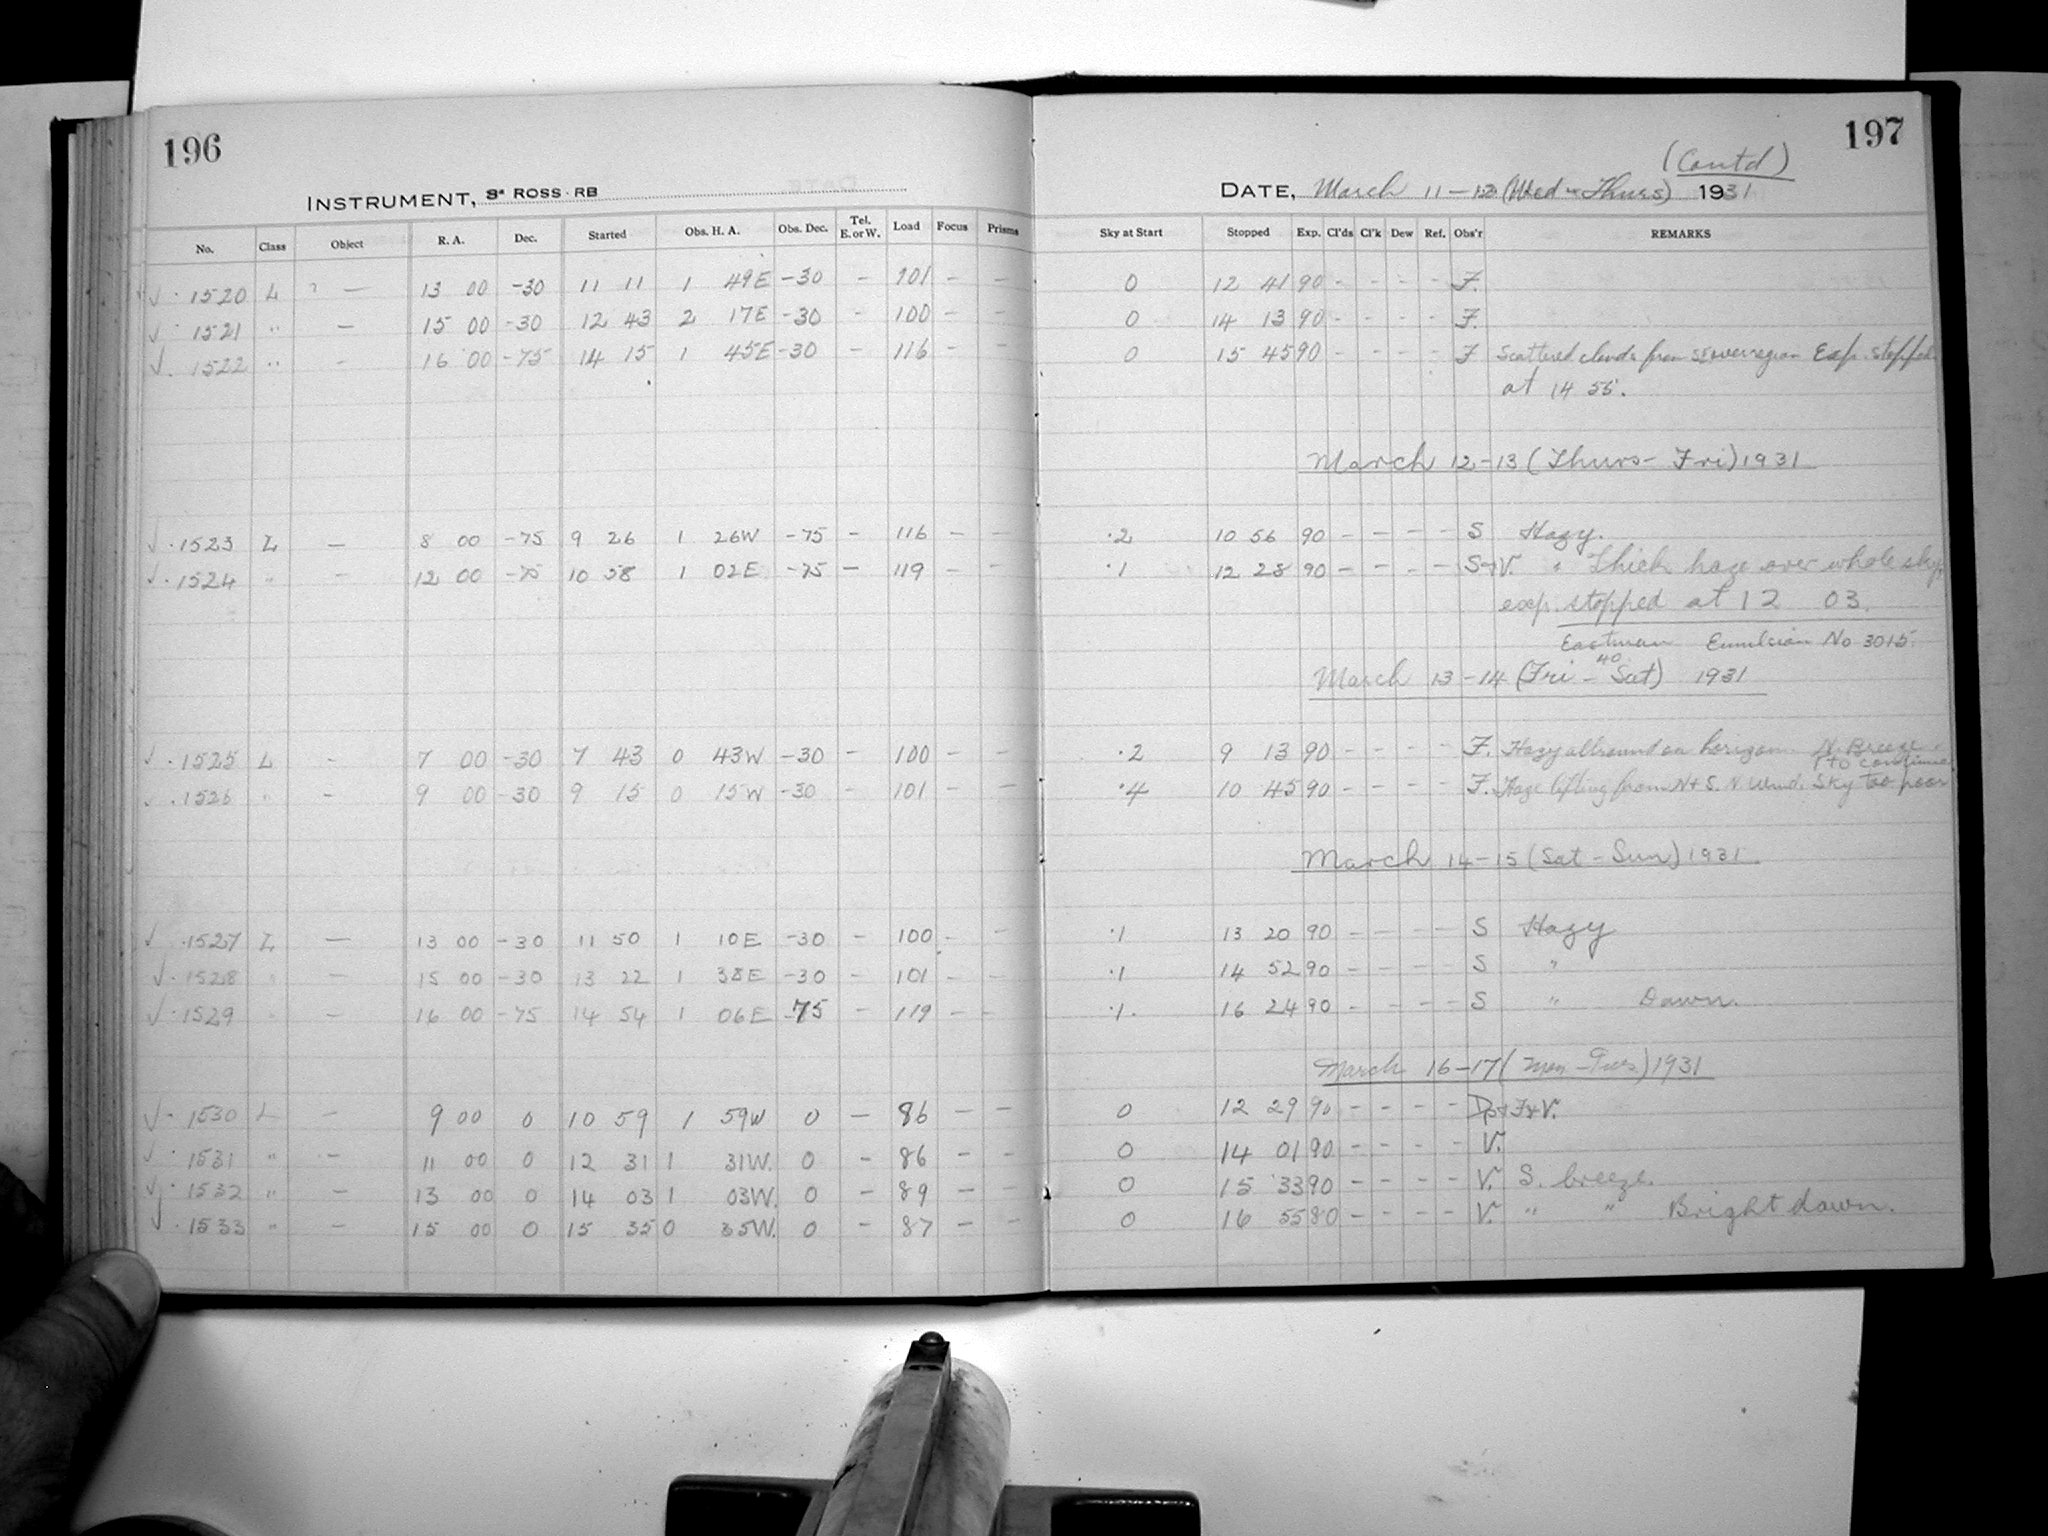 196
INSTRUMENT, 3" ROSS-RB
No. Class Object R. A. Dec. Started Obs. H. A. Obs. Dec. Tel. E. or W. Load Focus Prisms
√ · 1520 L — 13 00 -30 11 11 1 49E -30 - 101 - -
√ · 1521 " — 15 00 -30 12 43 2 17E -30 - 100 - -
√ · 1522 " - 16 00 -75 14 15 1 45E -30 - 116 - -
√ · 1523 L — 8 00 -75 9 26 1 26W -75 - 116 - -
√ · 1524 " - 12 00 -75 10 58 1 02E -75 - 119 - -
√ · 1525 L - 7 00 -30 7 43 0 43W -30 - 100 - -
√ · 1526 " - 9 00 -30 9 15 0 15W -30 - 101 - -
√ · 1527 L — 13 00 -30 11 50 1 10E -30 - 100 - -
√ · 1528 " — 15 00 -30 13 22 1 38E -30 - 101 - -
√ · 1529 " — 16 00 -75 14 54 1 06E -75 - 119 - -
√ · 1530 L - 9 00 0 10 59 1 59W 0 - 86 - -
√ · 1531 " - 11 00 0 12 31 1 31W. 0 - 86 - -
√ · 1532 " - 13 00 0 14 03 1 03W. 0 - 89 - -
√ · 1533 " - 15 00 0 15 35 0 35W. 0 - 87 - -
197
(Contd)
DATE, March 11-12 (Wed - Thurs) 1931
Sky at Start Stopped Exp. Cl'ds Cl'k Dew Ref. Obs'r REMARKS
0 12 41 90 - - - - F.
0 14 13 90 - - - - F.
0 15 45 90 - - - - F Scattered clouds from SE over region Exp. stopped
at 14 55.
March 12-13 (Thurs- Fri) 1931
.2 10 56 90 - - - - S Hazy.
.1 12 28 90 - - - - S+V. " Thick haze over whole sky,
exp. stopped at 12 03.
Eastman 40 Emulsion No 3015.
March 13-14 (Fri - Sat) 1931
.2 9 13 90 - - - - F. Hazy all round on horizon. N. Breeze.
to continue
.4 10 45 90 - - - - F. Haze lifting from N + S. N. Wind. Sky too poor
March 14-15 (Sat - Sun) 1931
.1 13 20 90 - - - - S Hazy
.1 14 52 90 - - - - S "
.1. 16 24 90 - - - - S " Dawn.
March 16-17 (Mon - Tues) 1931
0 12 29 90 - - - - F+V.
0 14 01 90 - - - - V.
0 15 33 90 - - - - V. S. breeze.
0 16 55 80 - - - - V. " " Bright dawn.